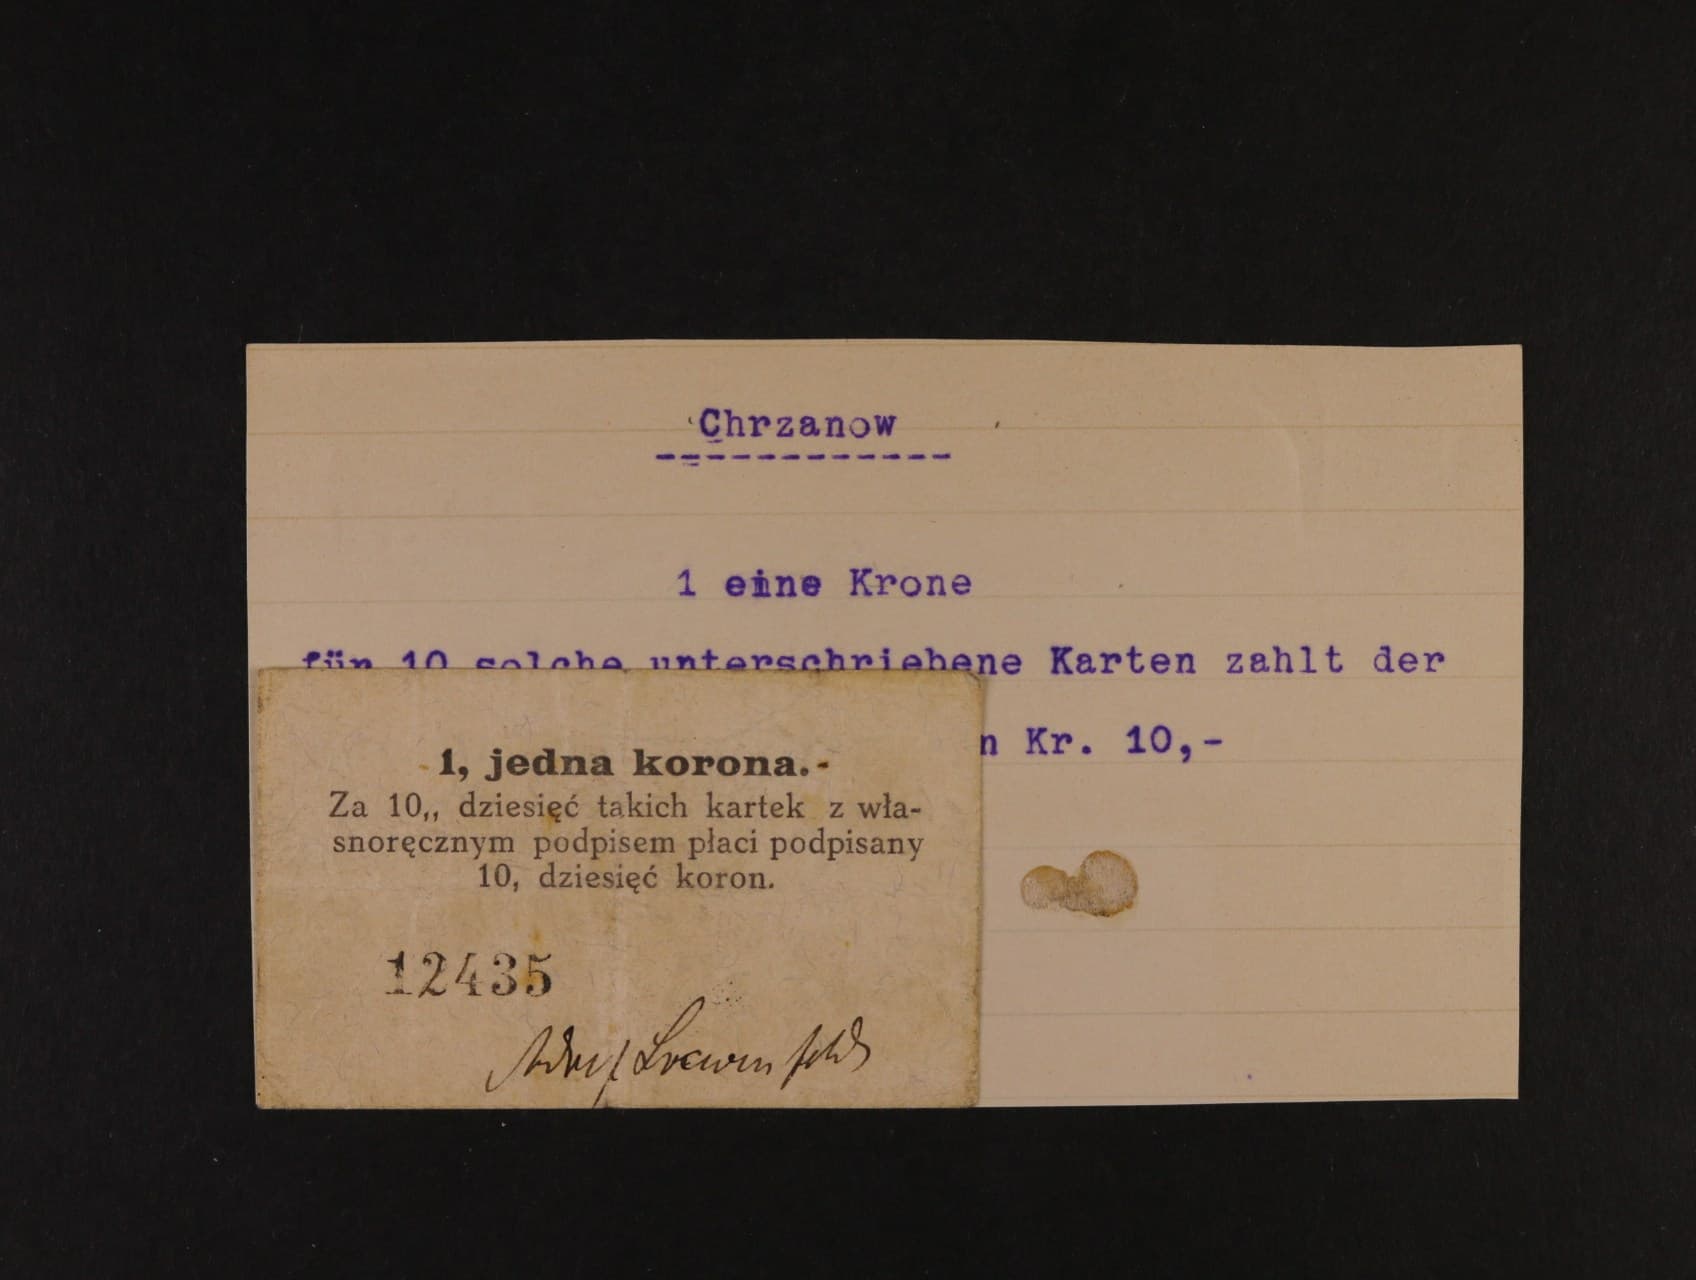 Chrzanow
1 eine Krone
für 10 solche unterschriebene Karten zahlt der
n Kr. 10,-
1, jedna korona.-
Za 10,, dziesięć takich kartek z wła-
snoręcznym podpisem płaci podpisany
10, dziesięć koron.
12435
Adolf Loewenfeld